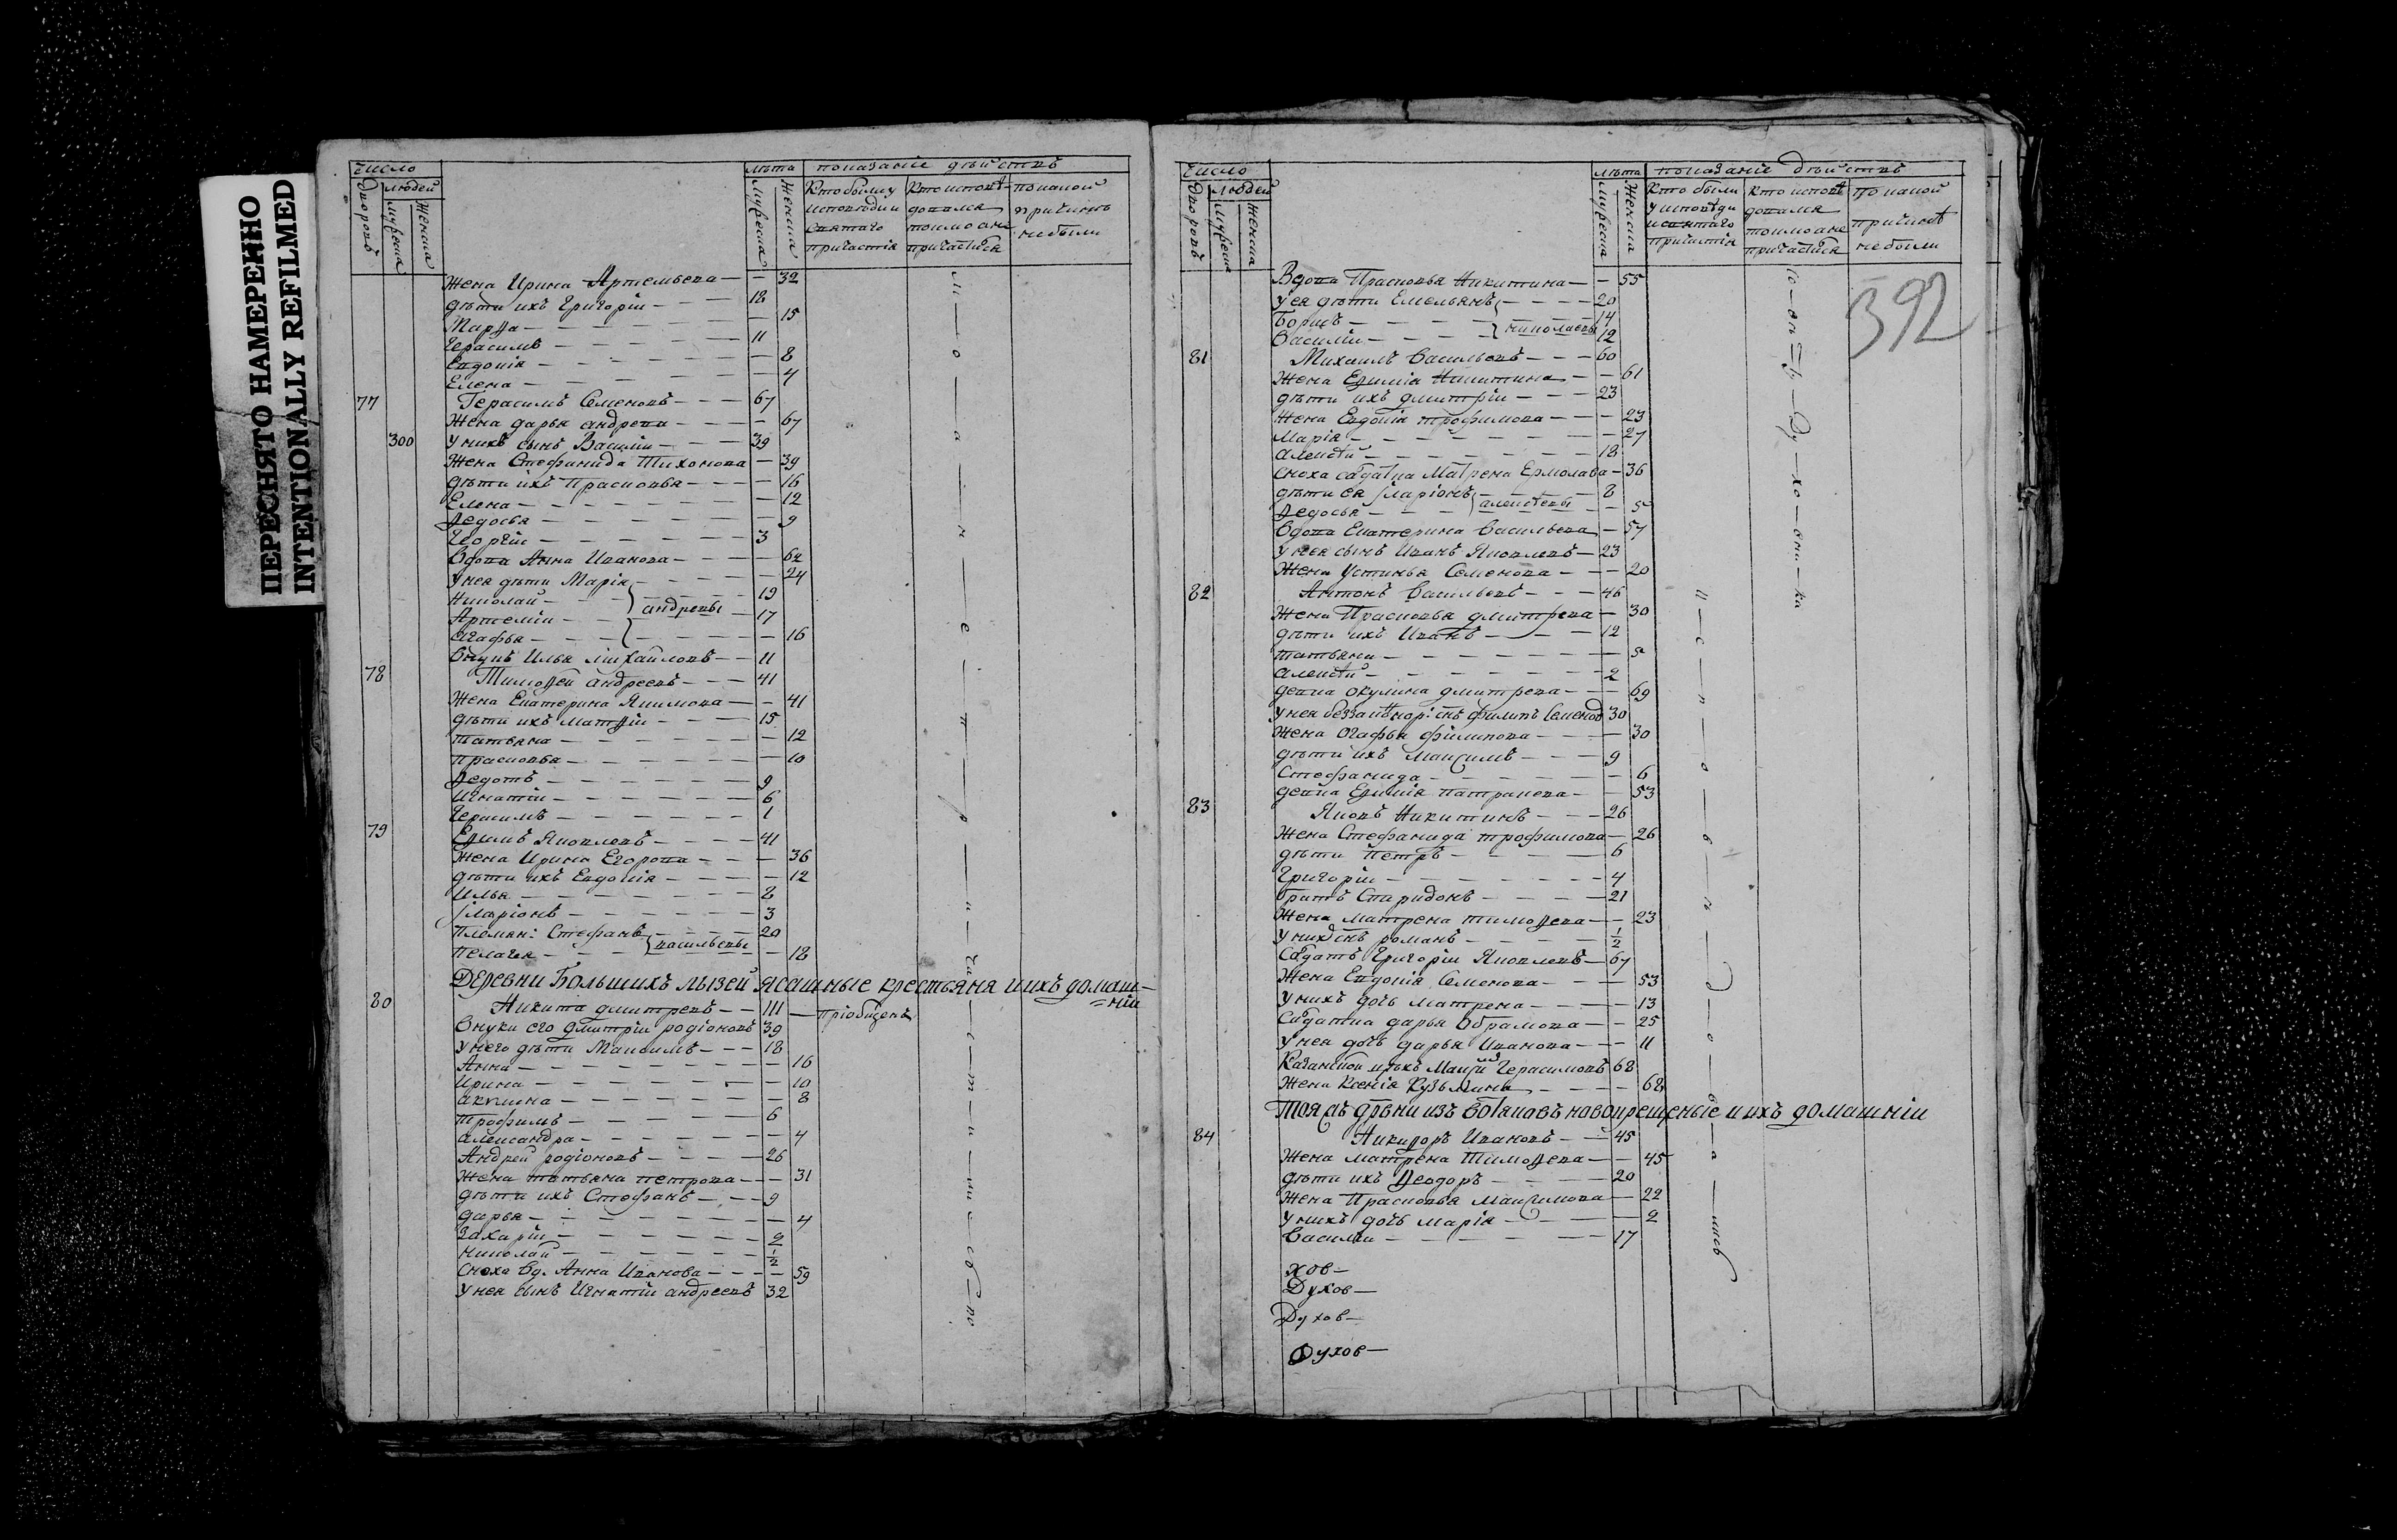 ПЕРЕСНЯТО НАМЕРЕННО
INTENTIONALLY REFILMED
число
лѣта показаніе дѣйствъ
дворовъ людей мужеска женска
мужеска женска
Кто были у исповѣди и святаго причастія
Кто исповѣдовался токмо а не причастился
по какой причинѣ не были
Жена Ирина Артемьева — — 32
дѣти ихъ Григорій — — — 18
Марѳа — — — — — 15
Герасимъ — — — — 11
Евдокія — — — — 8
Елена — — — — — 4
77 Герасимъ Семеновъ — — — 67
Жена дарья андрева — — — 67
300 У нихъ сынъ Василій — — — 39
Жена Стефанида Тихонова — 39
дѣти ихъ Прасковья — — — 16
Елена — — — — — 12
Ѳедосья — — — — — 9
Георгій — — — — — 3
Вдова Анна Иванова — — — 62
У нея дѣти Марія — — — 24
Николай — — — 19
Артемій — — андревы — 17
агафья — — — — 16
Внукъ Илья михайловъ — — 11
78 Тимоѳей андреевъ — — — 41
Жена Екатерина Якимова — — 41
дѣти ихъ Матѳій — — — 15
татьяна — — — — — 12
прасковья — — — — — 10
Ѳедотъ — — — — — 9
Игнатій — — — — — 6
Герасимъ — — — — — 1
79 Еѳимъ Яковлевъ — — — — 41
Жена Ирина Егорова — — — 36
дѣти ихъ Евдокія — — — — 12
Илья — — — — — 8
Іларіонъ — — — — — 3
племян: Стефанъ — — 20
пелагея — — — васильевы — — 18
Деревни Большихъ лызей ясашные крестьяня и ихъ домаш-
=ніи
80 Никита дмитревъ — — 111 — пріобщенъ
Внуки его дмитрій родіоновъ 39
У него дѣти Максимъ — — 18
Анна — — — — — 16
Ирина — — — — — 10
акилина — — — — — 8
трофимъ — — — — — 6
александра — — — — — 4
Андрей родіоновъ — — — — 26
Жена татьяна петрова — — 31
дѣти ихъ Стефанъ — — — 9
дарья — — — — — 4
Захарій — — — — — 2
николай — — — — — 1/2
Сноха вд. Анна Иванова — — — 59
У нея сынъ Игнатій андреевъ 32
число
лѣта показаніе дѣйствъ
дворовъ людей мужеска женска
мужеска женска
Кто были у исповѣди и святаго причастія
Кто исповѣдовался токмо а не причастился
По какой причинѣ не были
392
Вдова Прасковья Никитина — — 55
У ея дѣти Емельянъ — — — 20
Борисъ — — — — 14
Василій — — — николаевы 12
81 Михаилъ Васильевъ — — — 60
Жена Еѳимія Никитина — — 61
дѣти ихъ дмитрій — — — 23
Жена Евдокія трофимова — — 23
Марія — — — — — 27
алексѣй — — — — — 18
сноха салдатка Матрена Ермолаева — 36
дѣти ея Іларіонъ — — — 8
Ѳедосья — — — алексѣевы — — 5
Вдова Екатерина Васильева — 57
У нея сынъ Иванъ Яковлевъ — 23
Жена Устинья Семенова — — — 20
82 Антонъ Васильевъ — — — 46
Жена Прасковья дмитрева — 30
дѣти ихъ Иванъ — — — 12
татьяна — — — — — 5
алексѣй — — — — — 2
девка окулина дмитрева — — — 69
Жена Огафья филипова — — — 30
дѣти ихъ Максимъ — — — 9
Стефанида — — — — — 6
83 Яковъ Никитинъ — — — 26
Жена Стефанида трофимова — 26
дѣти Петръ — — — — 6
Григорій — — — — — 4
братъ Спиридонъ — — — — 21
Жена матрена тимоѳева — — 23
У нихъ снъ романъ — — — — 1/2
Салдатъ Григорій Яковлевъ — 67
Жена Евдокія Семенова — — — 53
У нихъ дочь матрена — — — 13
Салдатка дарья Абрамова — — 25
У нея дочь дарья Иванова — — — 11
Жена Ксенія Кузьмина — — — 68
Тояжъ дрвни изъ вотяковъ новокрещеные и ихъ домашніи
84 Никифоръ Ивановъ — — 45
Жена матрена Тимоѳева — — 45
дѣти ихъ Ѳеодоръ — — — 20
Жена Прасковья Максимова — 22
У нихъ дочь марія — — — 2
Василій — — — — — 17
хов—
Духов—
Духов—
Духов—